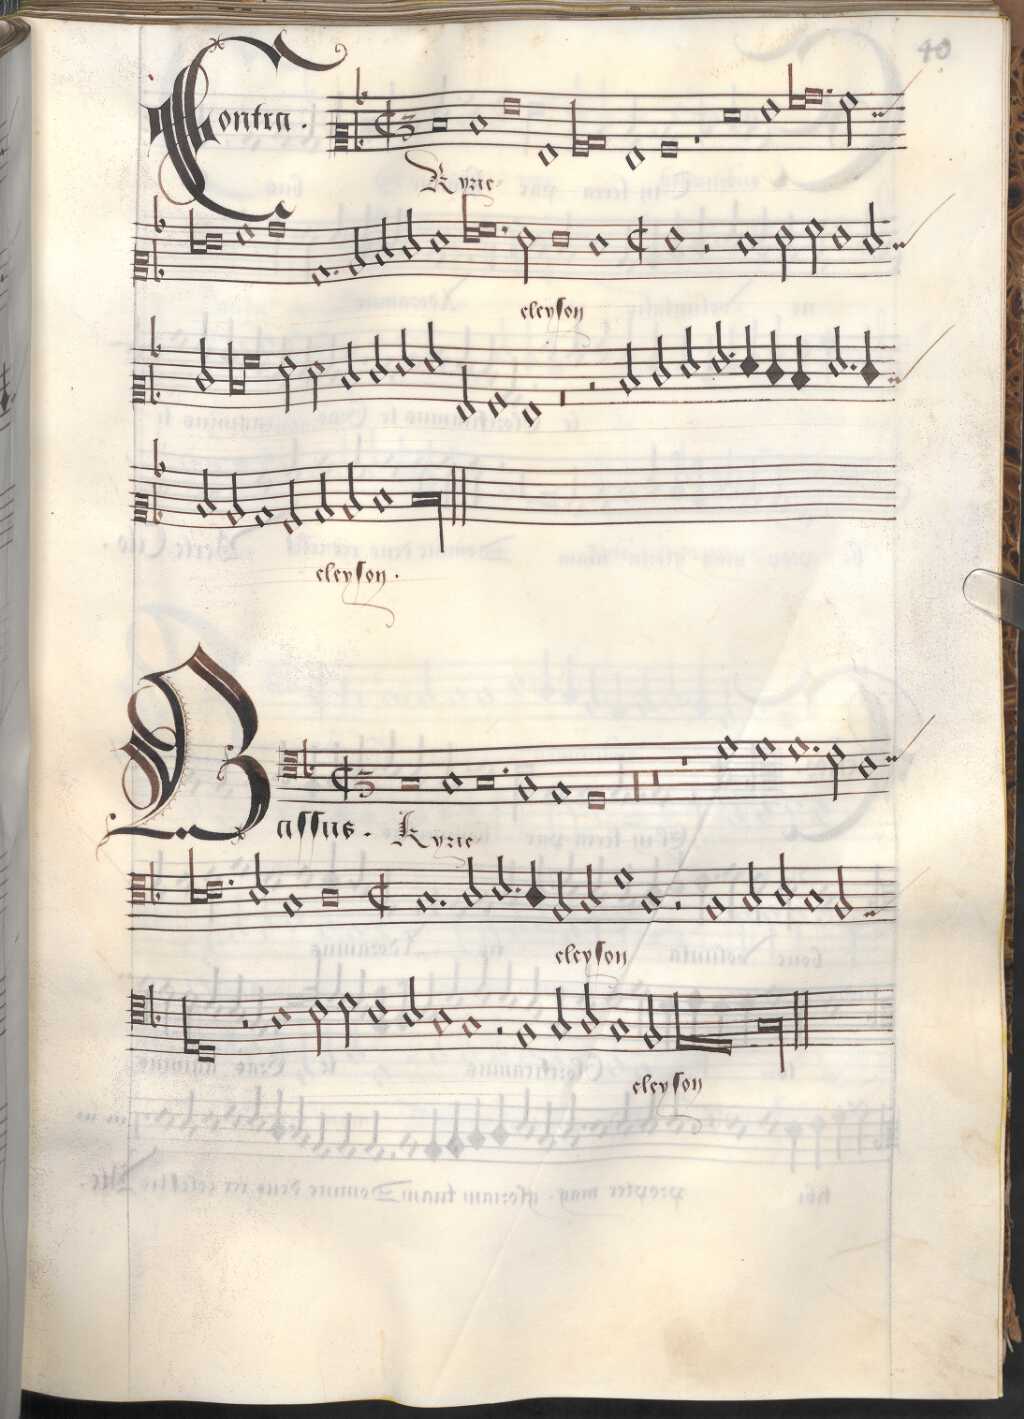 40
Contra.
Kyrie
eleyson
eleyson.
Bassus. Kyrie
eleyson
eleyson